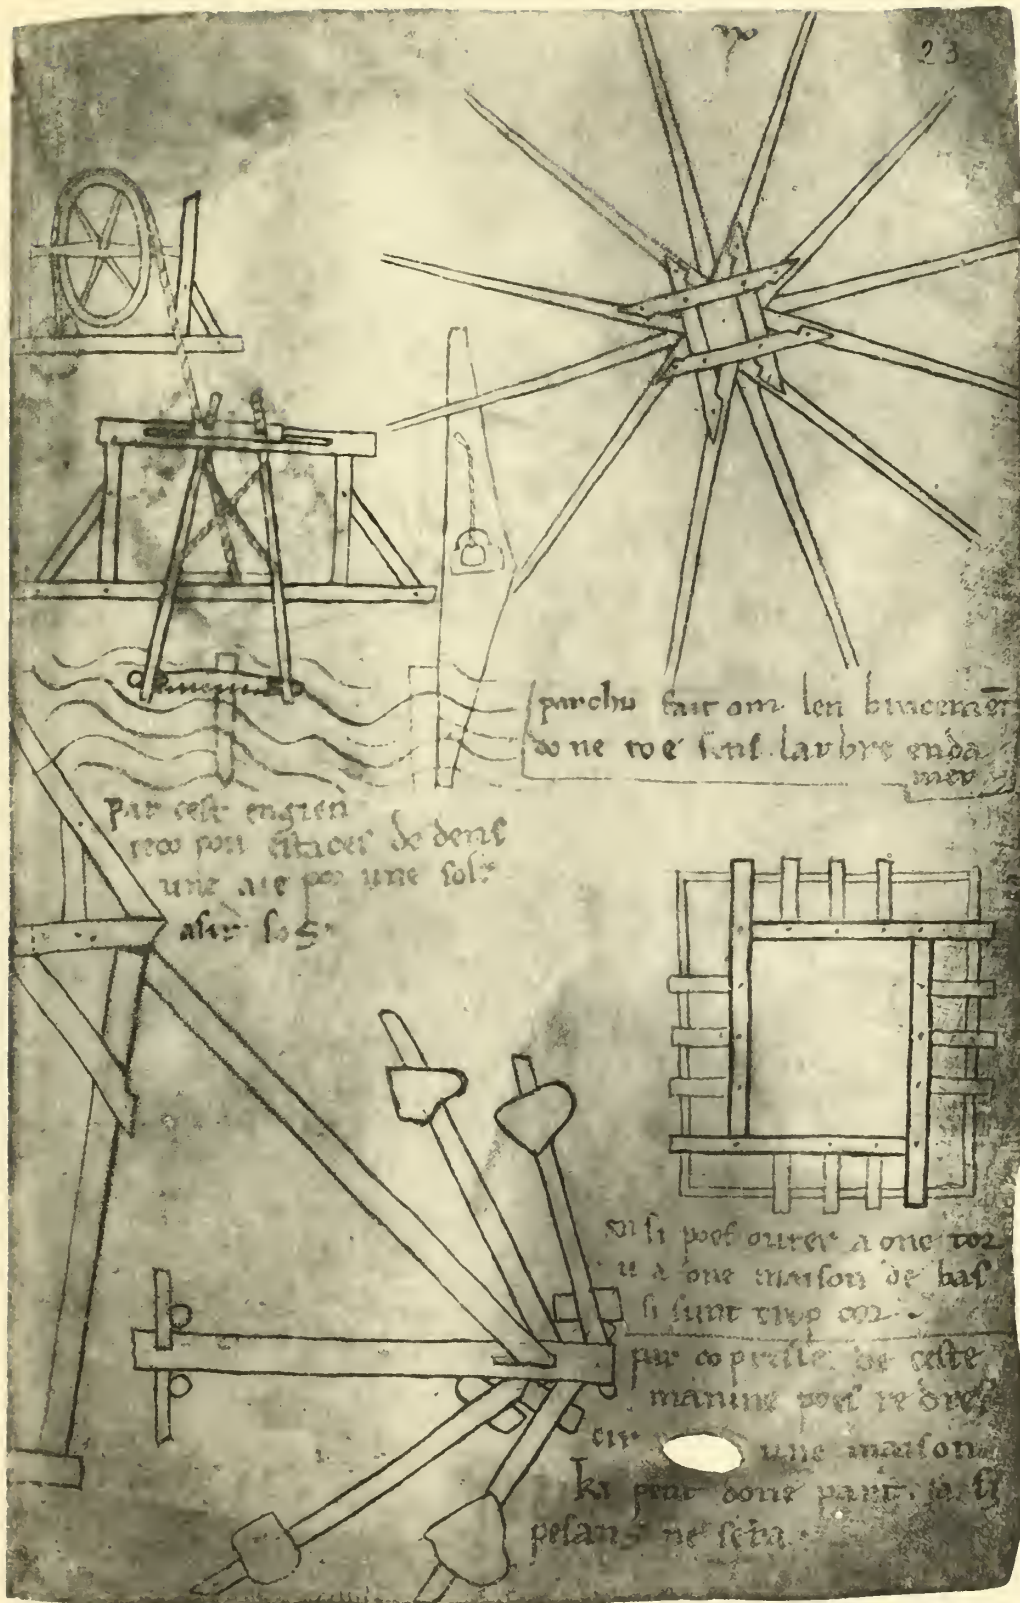 23
par chu fait om len bracement
done roe sens larbre enta
mer
par cest engien
reco pon estaces de dens
une aie por une sole
asir sos
ensi poes ovrer a one tor
u a one maison de bas
si sunt trop cor
par copresse de ceste
maniere poes re dre
cir une maison
ki pent done part ja si
pesans ne sera